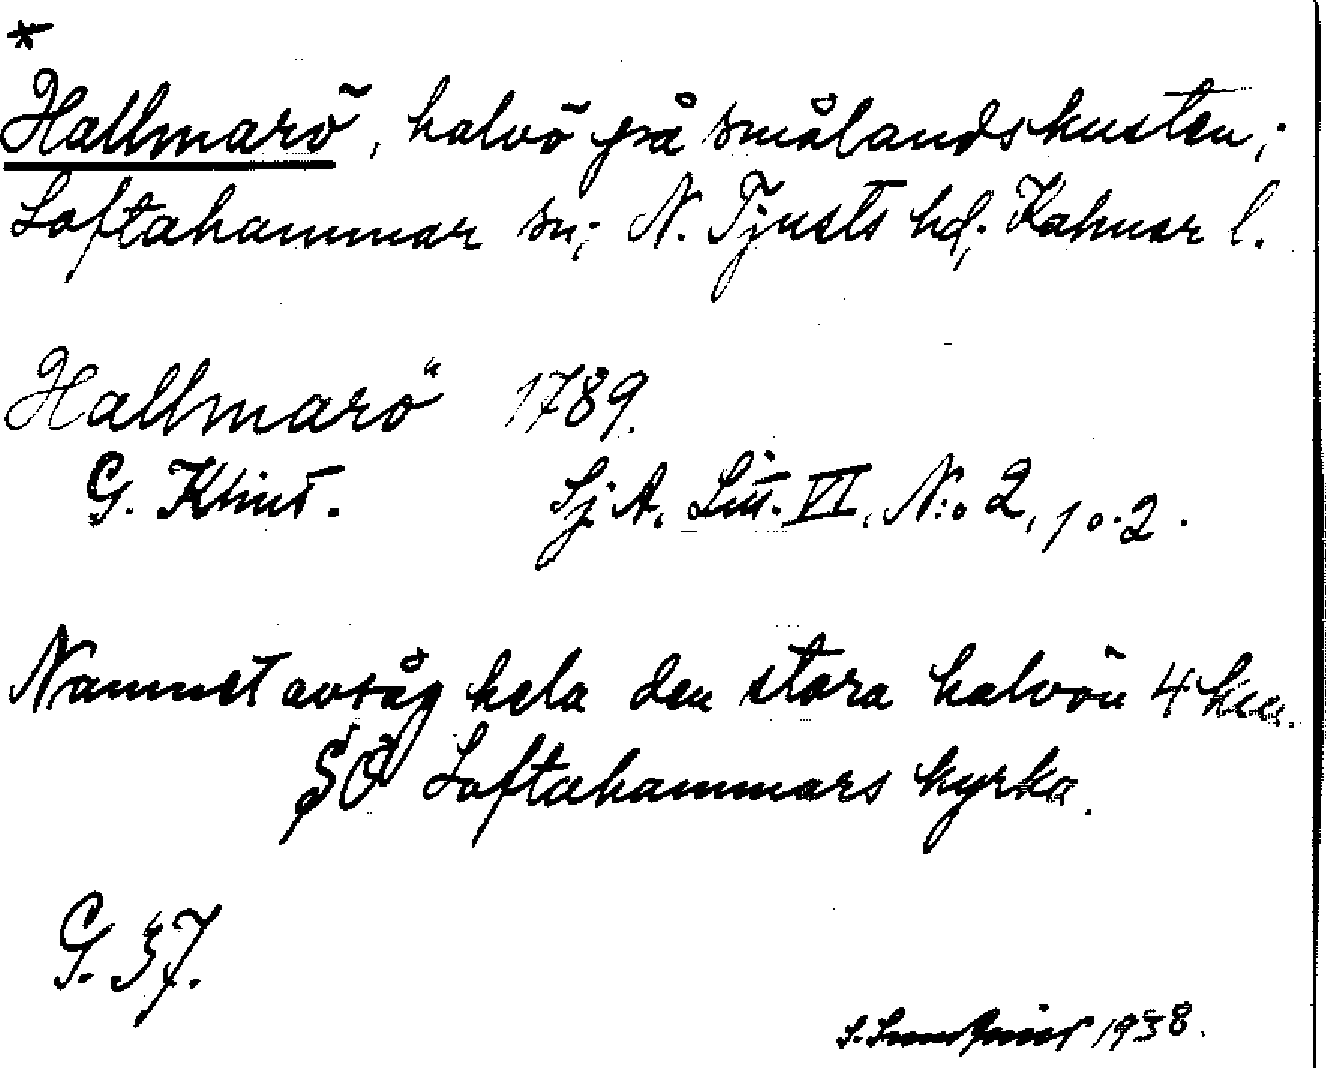 *
Hallmarö, halvö på smålandskusten;
Loftahammar sn; N. Tjusts hd; Kalmar l.
Hallmarö 1789.
G. Klint. Sj. A. Litt. VI, N:o 2, 1 o. 2.
Namnet avsåg hela den stora halvön 4 km.
SÖ Loftahammars kyrka.
G. 37.
S. 1938.